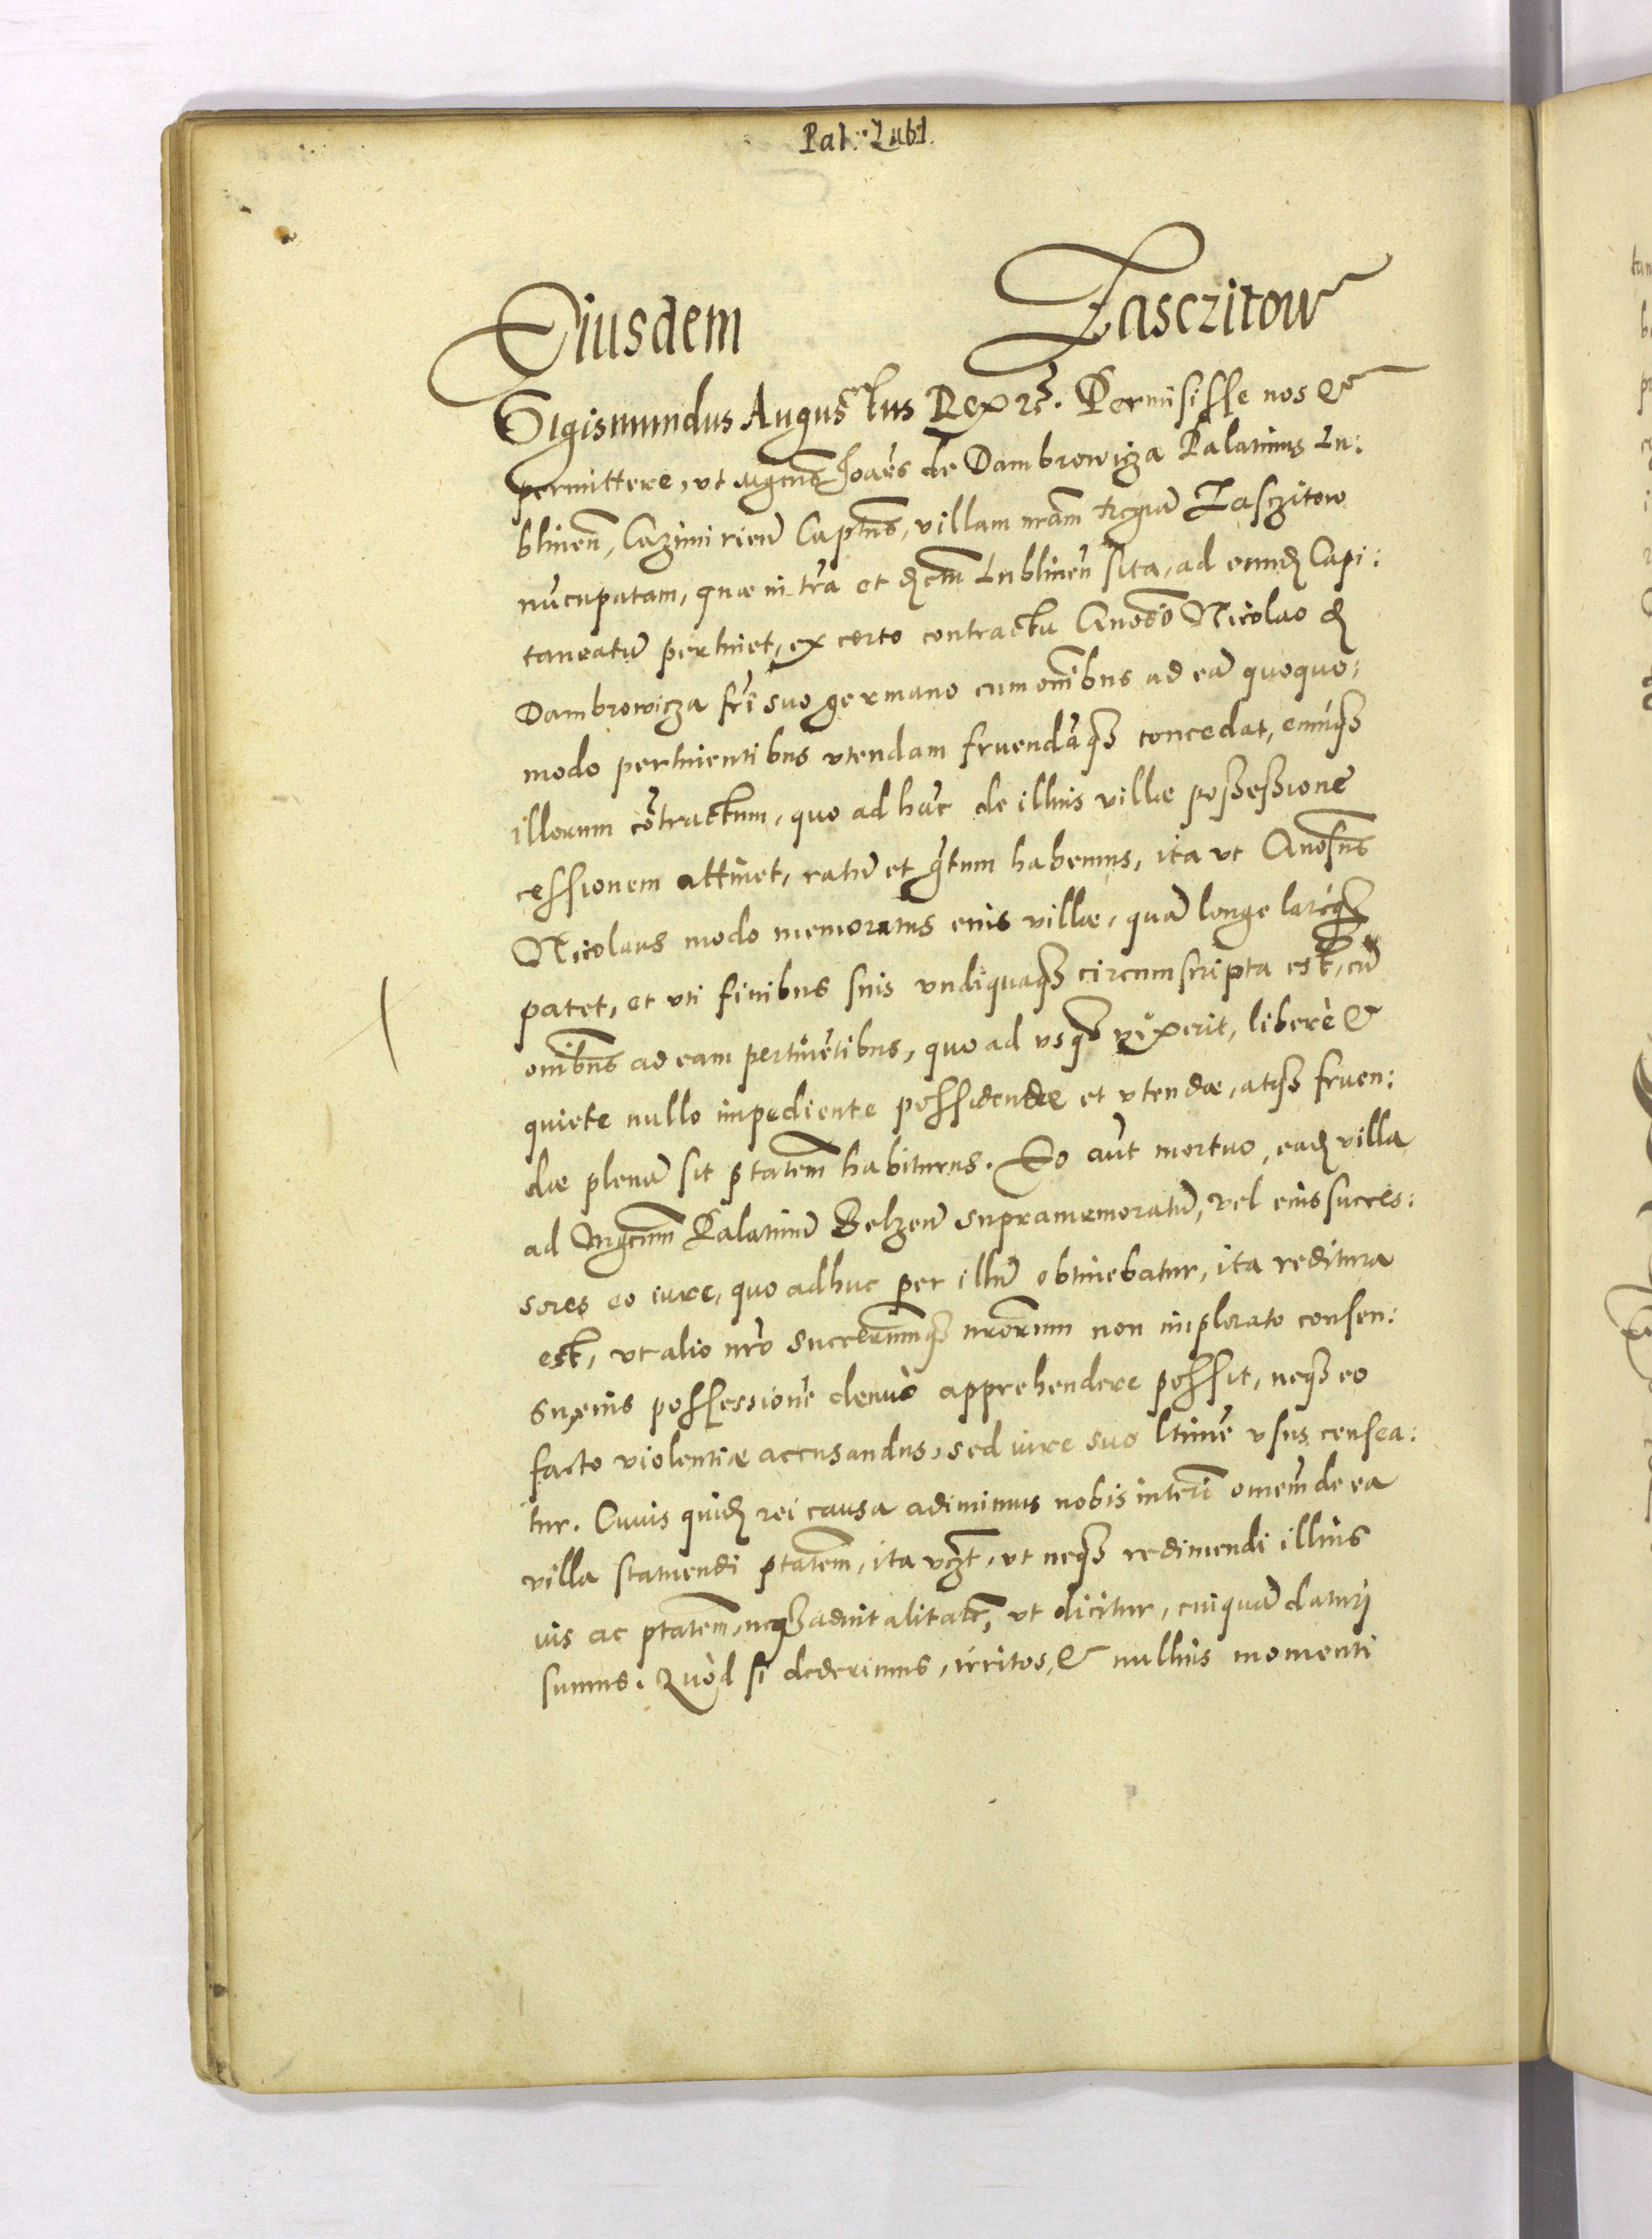 Pal: Lubl.
Eiusdem Zasczitow
Sigismundus Augustus Rex etc. Permisisse nos &
permittere, vt Mgcus Joães de Dambrowicza Palatinus Lu:
blineñ, Cazimirieñ Captus, villam nrãm regiã Zasczitow
nũcupatam, quæ in trã et dcm Lublineñ sita, ad eund Capi:
taneatũ pertinet, ex certo contractu Gnoso Nicolao d
Dambrowicza fri suo germano cum omibus ad eã quoquo:
modo pertinentibus vtendam fruendãq3 concedat, eumq3
illorum cõtractum, quo ad hãc de illius villæ possessione
cessionem attinet, ratũ et grtum habemus, ita vt Gnosus
Nicolaus modo memoratus eius villæ, quã longe lateq3
patet, et vti finibus suis vndiquaq3 circumscripta est, cũ
omibus ad eam pertinẽtibus, quo ad vsq3 vixerit, liberè &
quiete nullo impediente possidendæ et vtendæ, atq3 fruen:
dæ plenã sit ptatem habiturus. Eo aũt mortuo, ead villa
ad Mgcum Palatinũ Belzeñ supramemoratũ, vel eius succes:
sores eo iure, quo adhuc per illũ obtinebatur, ita reditura
est, vt alio nro succerumq3 nrorum non implorato consen:
su, eius possessionẽ denuò apprehendere possit, neq3 eo
facto violentiæ accusandus, sed iure suo ltimẽ vsus censea:
tur. Cuius quid rei causa adimimus nobis interĩ omem de ea
villa statuendi ptatem, ita vzt, vt neq3 redimendi illius
ius ac ptatem, neq3 aduitalitatẽ, vt dicitur, cuiquã daturi
sumus. Quòd si dederimus, irritos, & nullius momenti